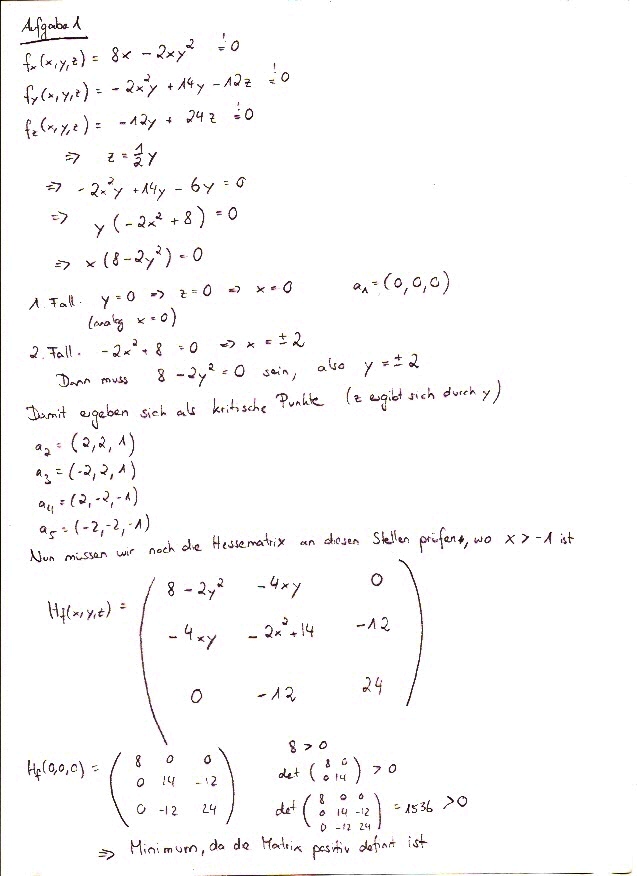 Aufgabe 1
fx(x,y,z) = 8x - 2xy² =! 0
fy(x,y,z) = -2x²y + 14y - 12z =! 0
fz(x,y,z) = -12y + 24z =! 0
⇒ z = 1/2 y
⇒ -2x²y + 14y - 6y = 0
⇒ y(-2x² + 8) = 0
⇒ x(8 - 2y²) = 0
1. Fall. y = 0 ⇒ z = 0 ⇒ x = 0 a₁ = (0,0,0)
(analog x = 0)
2. Fall. -2x² + 8 = 0 ⇒ x = ±2
Dann muss 8 - 2y² = 0 sein, also y = ±2
Damit ergeben sich als kritische Punkte (z ergibt sich durch y)
a₂ = (2, 2, 1)
a₃ = (-2, 2, 1)
a₄ = (2, -2, -1)
a₅ = (-2, -2, -1)
Nun müssen wir noch die Hessematrix an diesen Stellen prüfen, wo x > -1 ist
Hf(x,y,z) = ( 8 - 2y² -4xy 0
-4xy -2x² + 14 -12
0 -12 24 )
Hf(0,0,0) = ( 8 0 0
0 14 -12
0 -12 24 )
8 > 0
det ( 8 0
0 14 ) > 0
det ( 8 0 0
0 14 -12
0 -12 24 ) = 1536 > 0
⇒ Minimum, da die Matrix positiv definit ist